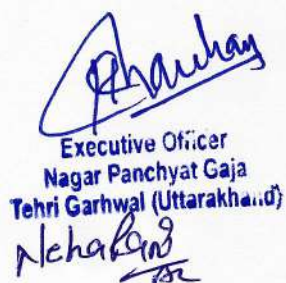 Chauhan
Executive Officer
Nagar Panchyat Gaja
Tehri Garhwal (Uttarakhand)
Neha